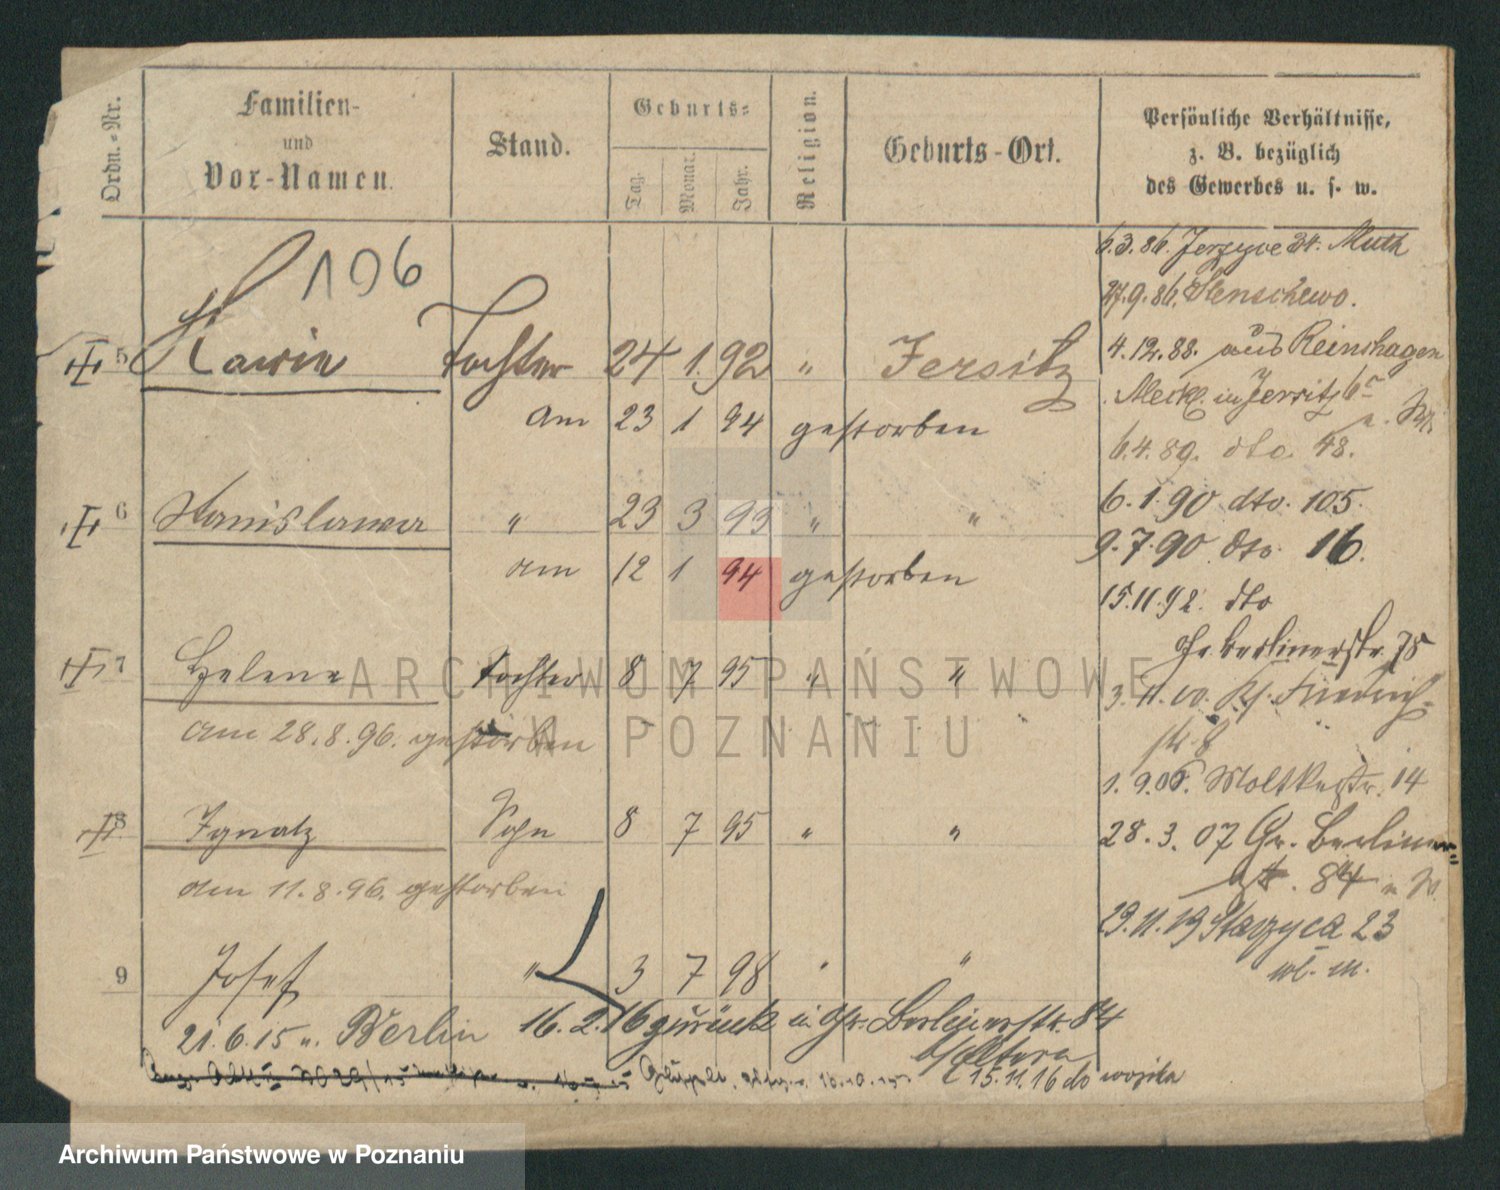 Ordn.-Nr.
Familien-
und
Vor-Namen.
Stand.
Geburts=
Tag.
Monat.
Jahr.
Religion.
Geburts-Ort.
Persönliche Verhältnisse,
z. B. bezüglich
des Gewerbes u. s. w.
196
5 Tochter 24 1. 92 " Jersitz
am 23 1 94 gestorben
6 Stanislawa " 23 3 93 " "
am 12 1 94 gestorben
7 Helene Tochter 8 7 95 " "
am 28.8.96. gestorben
8 Ignatz Sohn 8 7 95 " "
am 11.8.96. gestorben
9 Josef " 3 7 98 " "
21.6.15 n. Berlin 16.2.16 zurück in Gr. Berlinerstr. 84
b/ Eltern
15.11.16 do wojska
6.3.86. Jerzyce 34.
27.9.86.
4.12.88. aus Reinshagen
Meckl. in Jersitz
6.4.89. dto. 48.
6.1.90 dto. 105.
9.7.90 dto. 16.
15.11.92. dto
Gr. Berlinerstr. 78
3.11.00. Friedrich-
str. 8
1.9.06. Moltkestr. 14
28.3.07 Gr. Berliner=
str. 84
29.11.19 Staszyca 23
wl. m.
ARCHIWUM PAŃSTWOWE
W POZNANIU
Archiwum Państwowe w Poznaniu